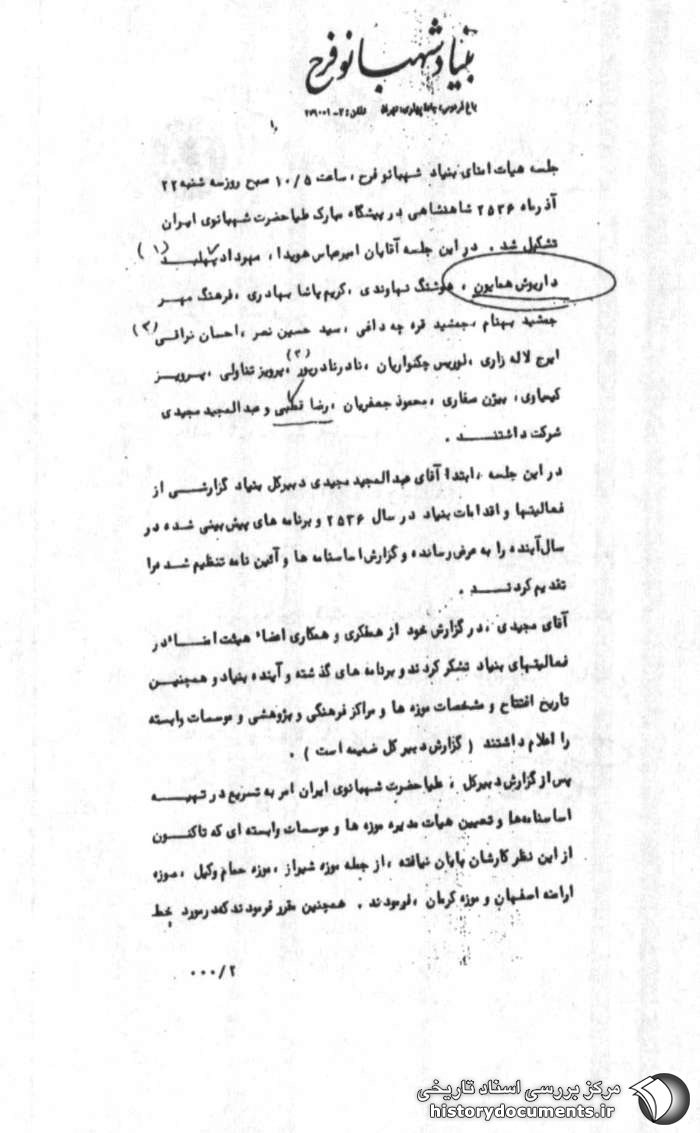 بنیاد شهبانو فرح
باغ فردوس، جاده پهلوی، تهران تلفن: ۳-۲۷۹۰۰۱
جلسه هیات امنای بنیاد شهبانو فرح، ساعت ۱۰/۵ صبح روز سه شنبه ۲۲
آذرماه ۲۵۳۶ شاهنشاهی در پیشگاه مبارک علیاحضرت شهبانوی ایران
تشکیل شد . در این جلسه آقایان امیرعباس هویدا، مهرداد پهلبد (۱)
داریوش همایون ، هوشنگ نهاوندی ، کریم پاشا بهادری ، فرهنگ مهر
جمشید بهنام ، جمشید قره چه داغی ، سید حسین نصر ، احسان نراقی (۲)
ایرج لاله زاری ، لوریس چکنواریان ، نادر نادرپور (۳) ، پرویز تناولی ، پرویز
کیمیاوی ، بیژن صفاری ، محمود جعفریان ، رضا قطبی و عبدالمجید مجیدی
شرکت داشتند .
در این جلسه ، ابتدا آقای عبدالمجید مجیدی دبیرکل بنیاد گزارشی از
فعالیتها و اقدامات بنیاد در سال ۲۵۳۶ و برنامه های پیش بینی شده در
سال آینده را به عرض رسانده و گزارش اساسنامه ها و آئین نامه تنظیم شده را
تقدیم کردند .
آقای مجیدی ، در گزارش خود از همفکری و همکاری اعضاء هیئت امناء در
فعالیتهای بنیاد تشکر کردند و برنامه های گذشته و آینده بنیاد و همچنین
تاریخ افتتاح و مشخصات موزه ها و مراکز فرهنگی و پژوهشی و موسسات وابسته
را اعلام داشتند ( گزارش دبیرکل ضمیمه است ) .
پس از گزارش دبیرکل ، علیاحضرت شهبانوی ایران امر به تسریع در تهیه
اساسنامه‌ها و تعیین هیات مدیره موزه ها و موسسات وابسته ای که تاکنون
از این نظر کارشان پایان نیافته ، از جمله موزه شیراز ، موزه حمام وکیل ، موزه
ارامنه اصفهان و موزه کرمان ، فرمودند . همچنین مقرر فرمودند که در مورد خط
۰۰۰/۲
مرکز بررسی اسناد تاریخی
historydocuments.ir